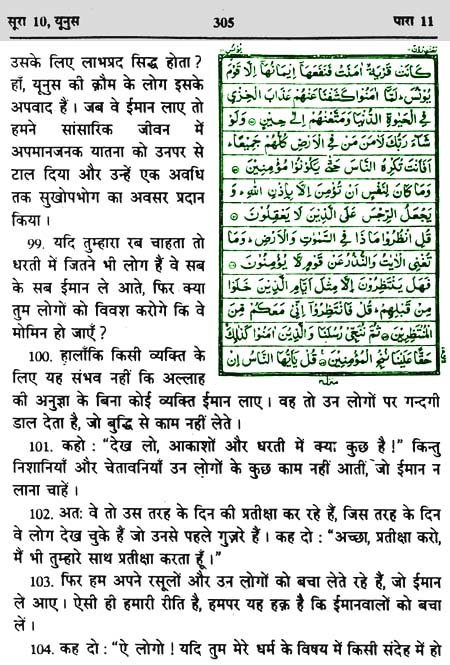 सूरा 10, यूनुस 305 पारा 11
उसके लिए लाभप्रद सिद्ध होता ?
हाँ, यूनुस की क़ौम के लोग इसके
अपवाद हैं । जब वे ईमान लाए तो
हमने सांसारिक जीवन में
अपमानजनक यातना को उनपर से
टाल दिया और उन्हें एक अवधि
तक सुखोपभोग का अवसर प्रदान
किया ।
99. यदि तुम्हारा रब चाहता तो
धरती में जितने भी लोग हैं वे सब
के सब ईमान ले आते, फिर क्या
तुम लोगों को विवश करोगे कि वे
मोमिन हो जाएँ ?
100. हालाँकि किसी व्यक्ति के
लिए यह संभव नहीं कि अल्लाह
كَانَتْ قَرْيَةٌ اٰمَنَتْ فَنَفَعَهَآ اِيْمَانُهَآ اِلَّا قَوْمَ
يُوْنُسَ ۭ لَمَّآ اٰمَنُوْا كَشَفْنَا عَنْهُمْ عَذَابَ الْخِزْيِ
فِي الْحَيٰوةِ الدُّنْيَا وَمَتَّعْنٰهُمْ اِلٰى حِيْنٍ ۝ وَلَوْ
شَآءَ رَبُّكَ لَاٰمَنَ مَنْ فِي الْاَرْضِ كُلُّهُمْ جَمِيْعًا ۭ
اَفَاَنْتَ تُكْرِهُ النَّاسَ حَتّٰى يَكُوْنُوْا مُؤْمِنِيْنَ ۝
وَمَا كَانَ لِنَفْسٍ اَنْ تُؤْمِنَ اِلَّا بِاِذْنِ اللّٰهِ ۭ وَ
يَجْعَلُ الرِّجْسَ عَلَى الَّذِيْنَ لَا يَعْقِلُوْنَ ۝
قُلِ انْظُرُوْا مَاذَا فِي السَّمٰوٰتِ وَالْاَرْضِ ۭ وَمَا
تُغْنِي الْاٰيٰتُ وَالنُّذُرُ عَنْ قَوْمٍ لَّا يُؤْمِنُوْنَ ۝
فَهَلْ يَنْتَظِرُوْنَ اِلَّا مِثْلَ اَيَّامِ الَّذِيْنَ خَلَوْا
مِنْ قَبْلِهِمْ ۭ قُلْ فَانْتَظِرُوْٓا اِنِّيْ مَعَكُمْ مِّنَ
الْمُنْتَظِرِيْنَ ۝ ثُمَّ نُنَجِّيْ رُسُلَنَا وَالَّذِيْنَ اٰمَنُوْا كَذٰلِكَ
حَقًّا عَلَيْنَا نُنْجِ الْمُؤْمِنِيْنَ ۝ قُلْ يٰٓاَيُّهَا النَّاسُ اِنْ
की अनुज्ञा के बिना कोई व्यक्ति ईमान लाए । वह तो उन लोगों पर गन्दगी
डाल देता है, जो बुद्धि से काम नहीं लेते ।
101. कहो : “देख लो, आकाशों और धरती में क्या कुछ है !” किन्तु
निशानियाँ और चेतावनियाँ उन लोगों के कुछ काम नहीं आतीं, जो ईमान न
लाना चाहें ।
102. अतः वे तो उस तरह के दिन की प्रतीक्षा कर रहे हैं, जिस तरह के दिन
वे लोग देख चुके हैं जो उनसे पहले गुज़रे हैं । कह दो : “अच्छा, प्रतीक्षा करो,
मैं भी तुम्हारे साथ प्रतीक्षा करता हूँ ।”
103. फिर हम अपने रसूलों और उन लोगों को बचा लेते रहे हैं, जो ईमान
ले आए । ऐसी ही हमारी रीति है, हमपर यह हक़ है कि ईमानवालों को बचा
लें ।
104. कह दो : “ऐ लोगो ! यदि तुम मेरे धर्म के विषय में किसी संदेह में हो